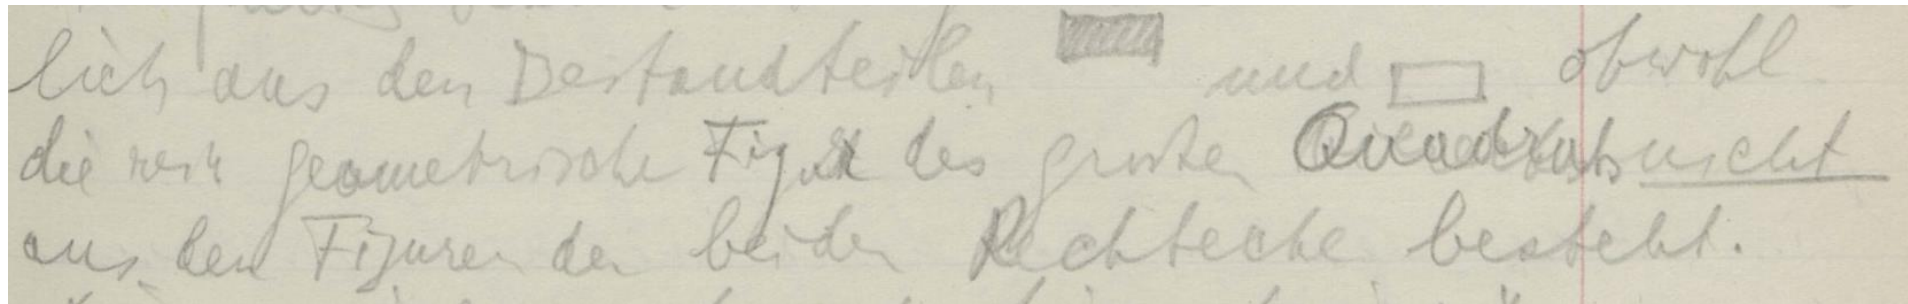 lich aus den Bestandteilen und obwohl
die rein geometrische Figur des großen Quadrats nicht
aus den Figuren der beiden Rechtecke besteht.